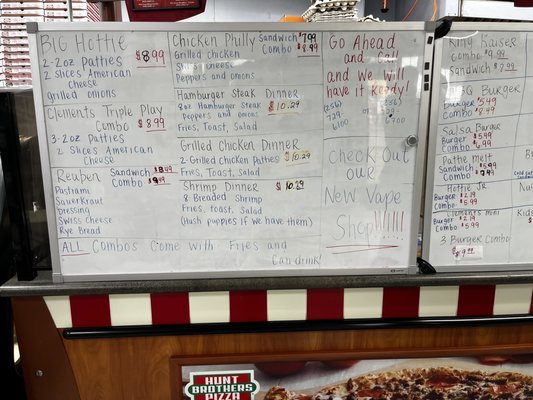 BIG Hottie $8.99
2-2oz Patties
2 Slices American
Cheese
grilled onions
Clements Triple Play
Combo $8.99
3-2oz Patties
2 Slices American
Cheese
Reuben Sandwich
Combo
Pastrami
Sauerkraut
Dressing
Swiss Cheese
Rye Bread
ALL Combos Come with Fries and
Can drink!
Chicken Philly Sandwich $7.99
Combo $8.99
Grilled chicken
Slices cheese
Peppers and onions
Hamburger Steak Dinner
8oz Hamburger Steak $10.29
Peppers and onions
Fries, Toast, Salad
Grilled Chicken Dinner
2 Grilled Chicken Patties $10.29
Fries, Toast, Salad
Shrimp Dinner $10.29
8 Breaded Shrimp
Fries, toast, Salad
(Hush puppies if we have them)
Go Ahead
and Call
and we Will
have it Ready!
(256) or (256)
729
6100
Check Out
our
New Vape
Shop!!!!!!
King Kaiser
Combo $9.99
Sandwich $7.99
BBQ Burger
Burger $5.49
Combo $8.49
Salsa Burger
Burger $5.49
Combo
Patty Melt
Sandwich
Combo
Hottie Jr
Burger $2.19
Combo $5.99
Clements Mini
Burger $2.19
Combo $5.99
3 Burger Combo
$9.99
HUNT
BROTHERS
PIZZA